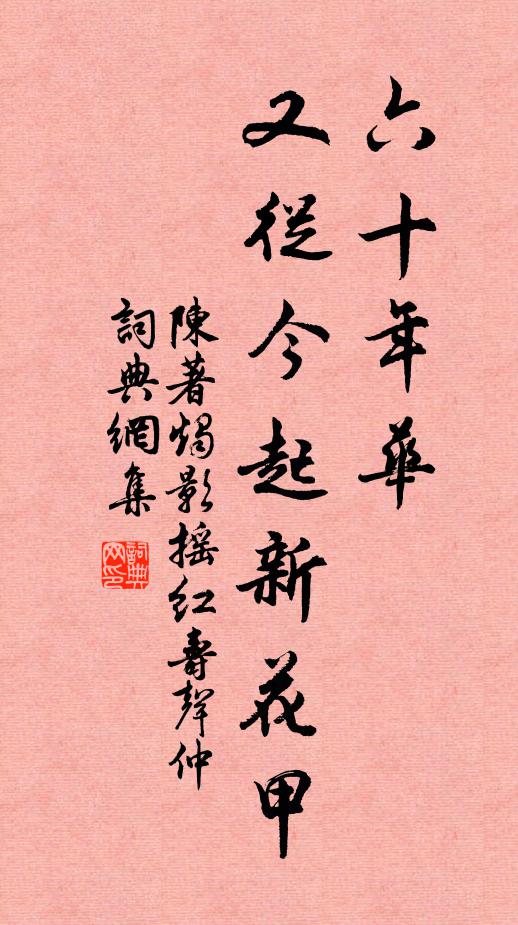 六十年華
又從今起新花甲
陳著燭影搖紅壽聲仲
詞典網集
詞典网印